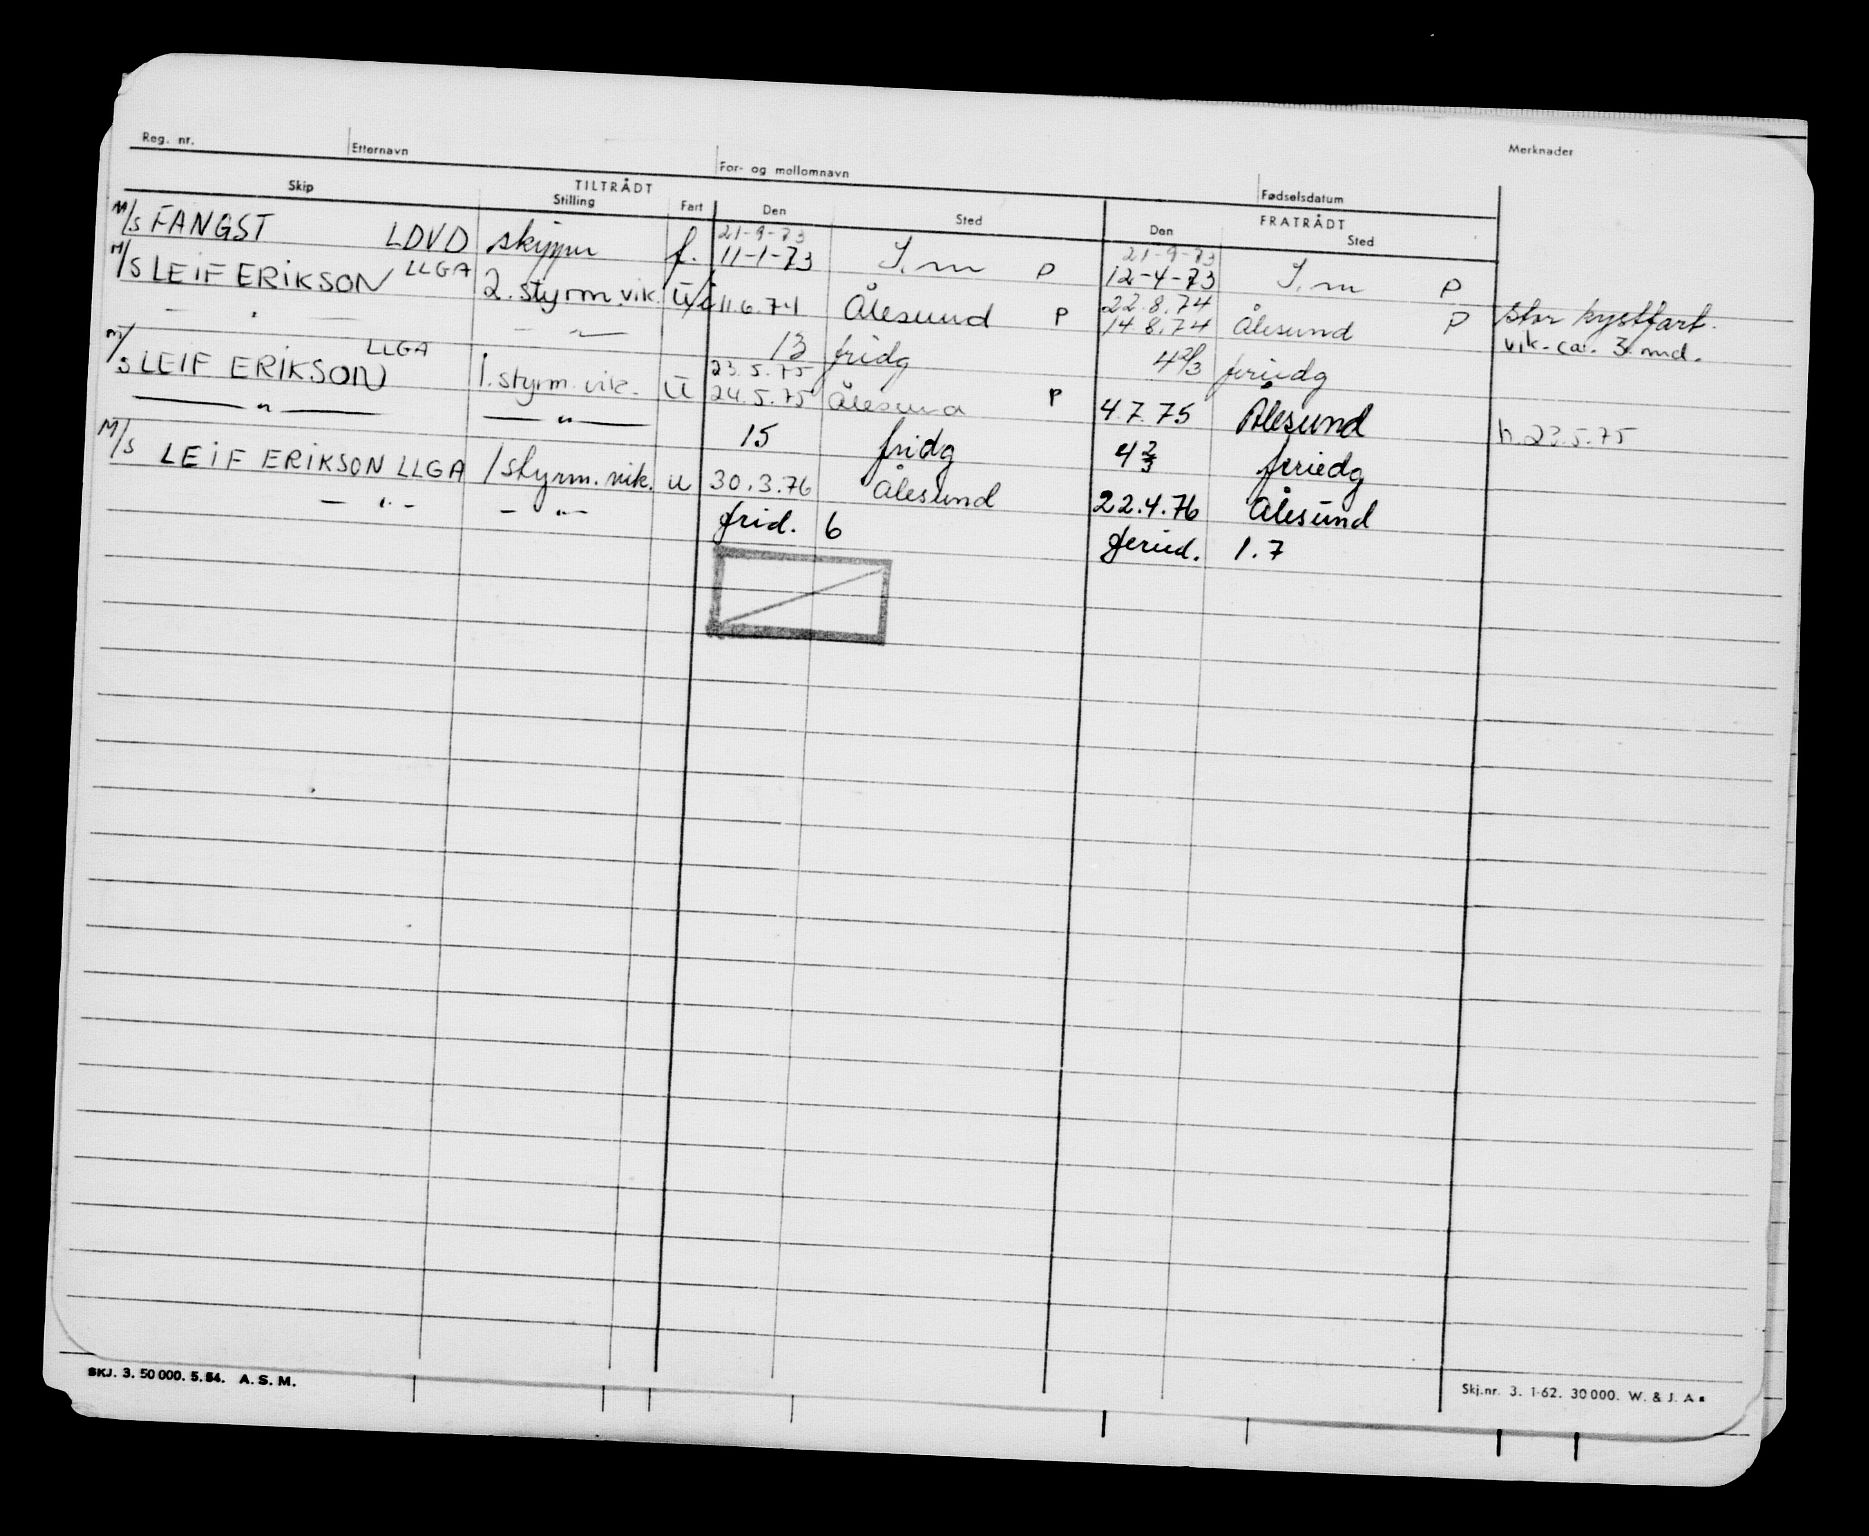 Reg. nr. Etternavn For- og mellomnavn Fødselsdatum Merknader
TILTRÅDT FRATRÅDT
Skip Stilling Fart Den Sted Den Sted
21-9-73 21-9-73
M/S FANGST LDVD skipper f. 11-1-73 S.m P 12-4-73 S.m P
22.8.74
M/S LEIF ERIKSON LLGA 2. styrm. vik. U/i 11.6.74 Ålesund P 14.8.74 Ålesund P Stor kystfart.
— " — — " — 13 fridg 4 2/3 feriedg vik. ca. 3 md.
23.5.75
M/S LEIF ERIKSON LLGA 1. styrm. vik. U 24.5.75 Ålesund P 4.7.75 Ålesund h. 23.5.75
— " — — " — 15 fridg 4 2/3 feriedg
M/S LEIF ERIKSON LLGA 1 styrm. vik. u 30.3.76 Ålesund 22.4.76 Ålesund
— " — — " — frid. 6 feried. 1.7
SKJ. 3. 50 000. 5. 54. A. S. M.
Skj.nr. 3. 1-62. 30 000. W. & J. A